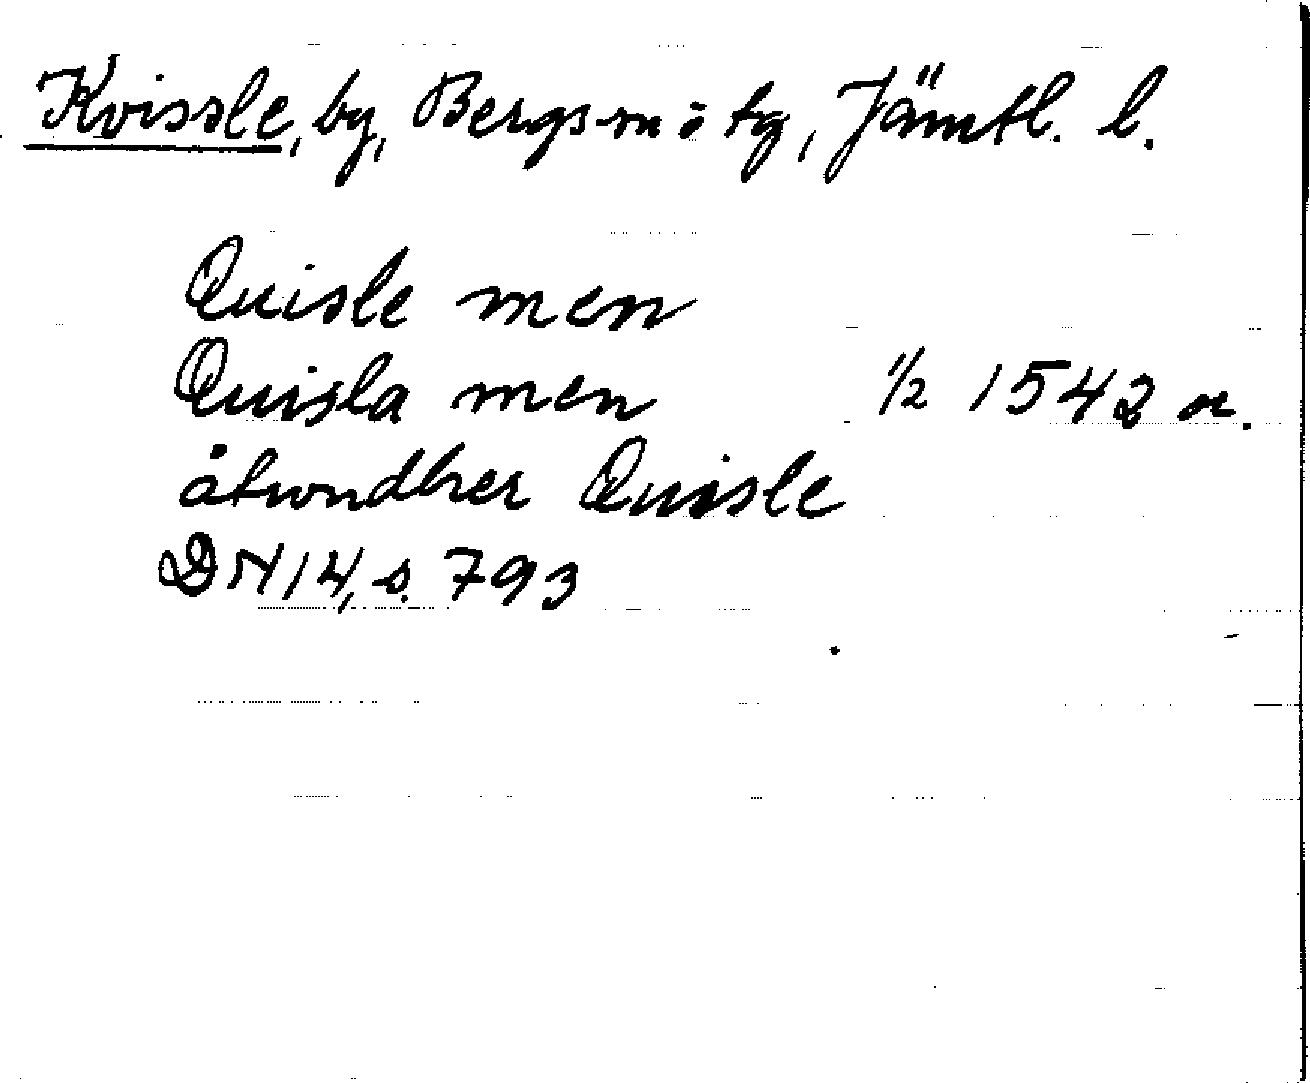 Kvissle, by, Bergs sn o tg, Jämtl. l.
Quisle men
Quisla men 1/2 1542 or.
åtwndher Quisle
DN 14, s. 793